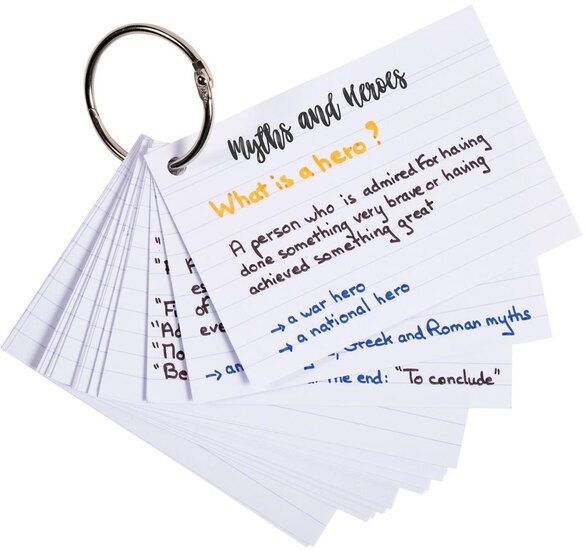 Myths and Heroes
What is a hero?
A person who is admired for having
done something very brave or having
achieved something great
→ a war hero
→ a national hero
es
of
eve
→ an Greek and Roman myths
"Fi
"Ad
"No
"Be
the end: "To conclude"